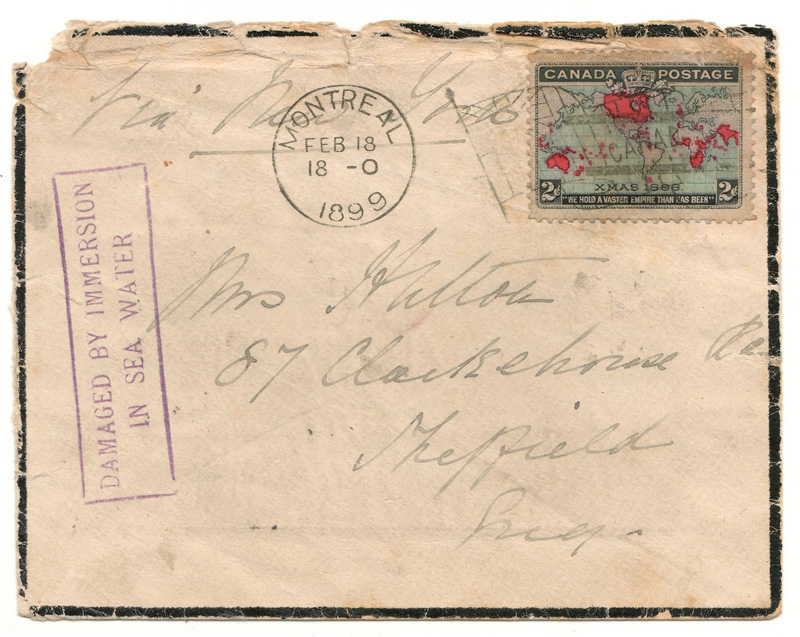 Via New York
MONTREAL
FEB 18
18 -0
1899
CANADA POSTAGE
XMAS 1898
2c 2c
"WE HOLD A VASTER EMPIRE THAN HAS BEEN"
DAMAGED BY IMMERSION
IN SEA WATER
Mrs Hutton
87 Clarkehouse
Sheffield
Eng.